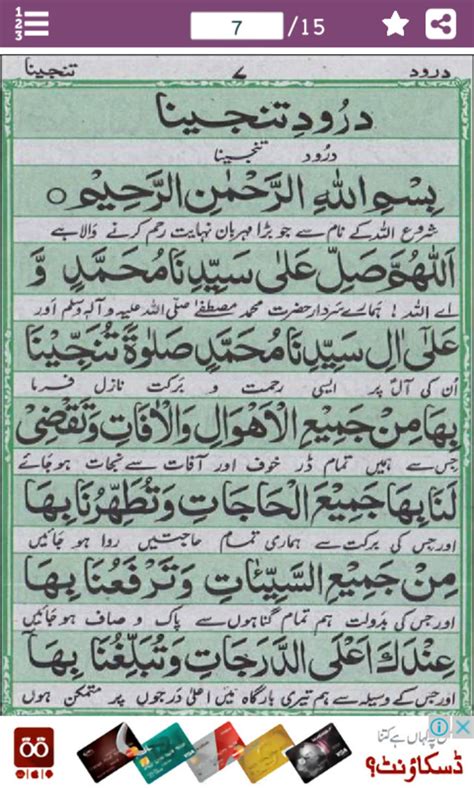 7 /15
درود ۷ تنجینا
درُودِ تنجینا
درُود تنجینا
بِسْمِ اللّٰهِ الرَّحْمٰنِ الرَّحِیْمِ ○
شروع اللہ کے نام سے جو بڑا مہربان نہایت رحم کرنے والا ہے
اَللّٰهُمَّ صَلِّ عَلٰی سَیِّدِنَا مُحَمَّدٍ وَّ
اے اللہ ! ہمارے سردار حضرت محمد مصطفےٰ صلی اللہ علیہ و آلہ وسلم اور
عَلٰۤی اٰلِ سَیِّدِنَا مُحَمَّدٍ صَلٰوةً تُنَجِّیْنَا
اُن کی آل پر ایسی رحمت و برکت نازل فرما
بِهَا مِنْ جَمِیْعِ الْاَهْوَالِ وَالْاٰفَاتِ وَتَقْضِیْ
جس سے ہمیں تمام ڈر خوف اور آفات سے نجات ہو جائے
لَنَا بِهَا جَمِیْعَ الْحَاجَاتِ وَتُطَهِّرُنَا بِهَا
اور جس کی برکت سے ہماری تمام حاجتیں روا ہو جائیں
مِنْ جَمِیْعِ السَّیِّاٰتِ وَتَرْفَعُنَا بِهَا
اور جس کی بدولت ہم تمام گناہوں سے پاک و صاف ہو جائیں
عِنْدَكَ اَعْلَی الدَّرَجَاتِ وَتُبَلِّغُنَا بِهَا
اور جس کے وسیلہ سے ہم تیری بارگاہ میں اعلیٰ درجوں پر متمکن ہوں
کہاں ہے کتنا
ڈسکاؤنٹ؟